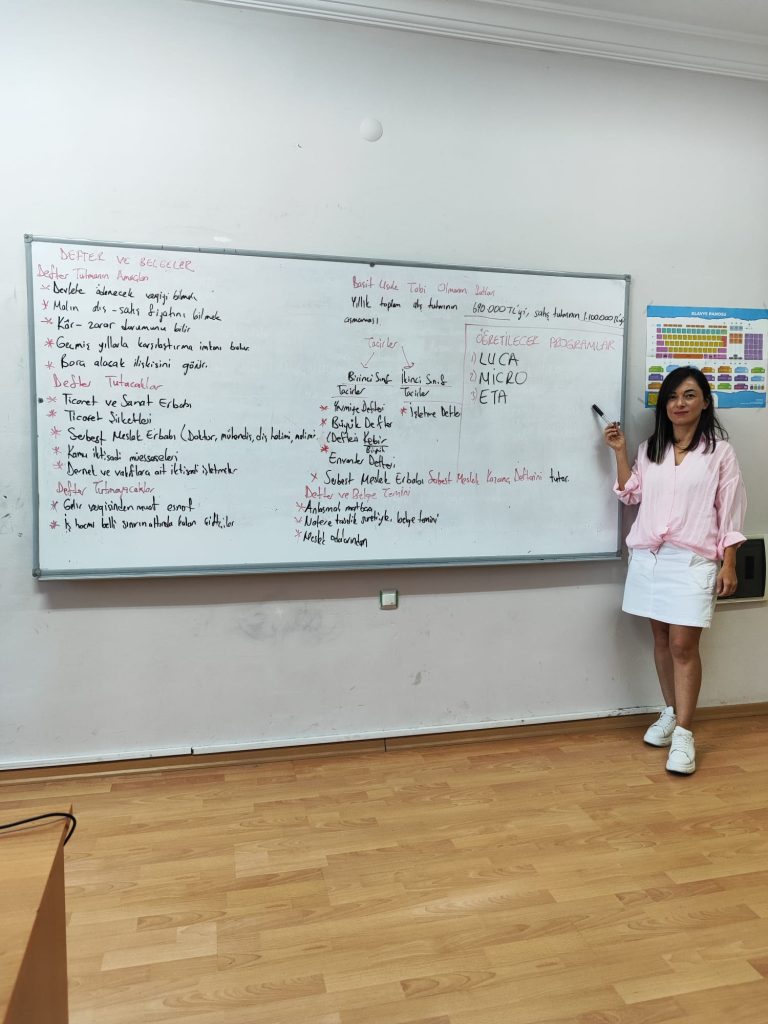 DEFTER VE BELGELER
Defter Tutmanın Amaçları
* Devlete ödenecek vergiyi bilmek
* Malın alış-satış fiyatını bilmek
* Kâr-zarar durumunu bilir
* Geçmiş yıllarla karşılaştırma imkanı bulur.
* Borç alacak ilişkisini görür.
Defter Tutacaklar
* Ticaret ve Sanat Erbabı
* Ticaret Şirketleri
* Serbest Meslek Erbabı (Doktor, mühendis, diş hekimi, mali mimar
* Kamu iktisadi müesseseleri
* Dernek ve vakıflara ait iktisadi işletmeler
Defter Tutmayacaklar
* Gelir vergisinden muaf esnaf
* İş hacmi belli sınırın altında kalan çiftçiler
Basit Usule Tabi Olmanın Şartları
Yıllık toplam alış tutarının 690.000 TL'yi, satış tutarının 1.100.000 TL'yi
aşmaması.
Tacirler
Birinci Sınıf Tacirler
* Yevmiye Defteri
* Büyük Defter
(Defteri Kebir
Büyük
* Envanter Defteri
İkinci Sınıf Tacirler
* İşletme Defteri
* Serbest Meslek Erbabı Serbest Meslek Kazanç Defterini tutar.
Defter ve Belge Temini
* Anlaşmalı matbaa
* Notere tasdik suretiyle, belge temini
* Meslek odalarından
ÖĞRETİLECEK PROGRAMLAR
1) LUCA
2) MİCRO
3) ETA
KLAVYE PANOSU